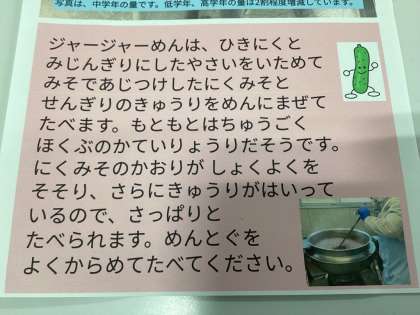 写真は、中学年の量です。低学年、高学年の量は2割程度増減しています。
ジャージャーめんは、ひきにくと
みじんぎりにしたやさいをいためて
みそであじつけしたにくみそと
せんぎりのきゅうりをめんにまぜて
たべます。もともとはちゅうごく
ほくぶのかていりょうりだそうです。
にくみそのかおりが しょくよくを
そそり、さらにきゅうりがはいって
いるので、さっぱりと
たべられます。めんとぐを
よくからめてたべてください。